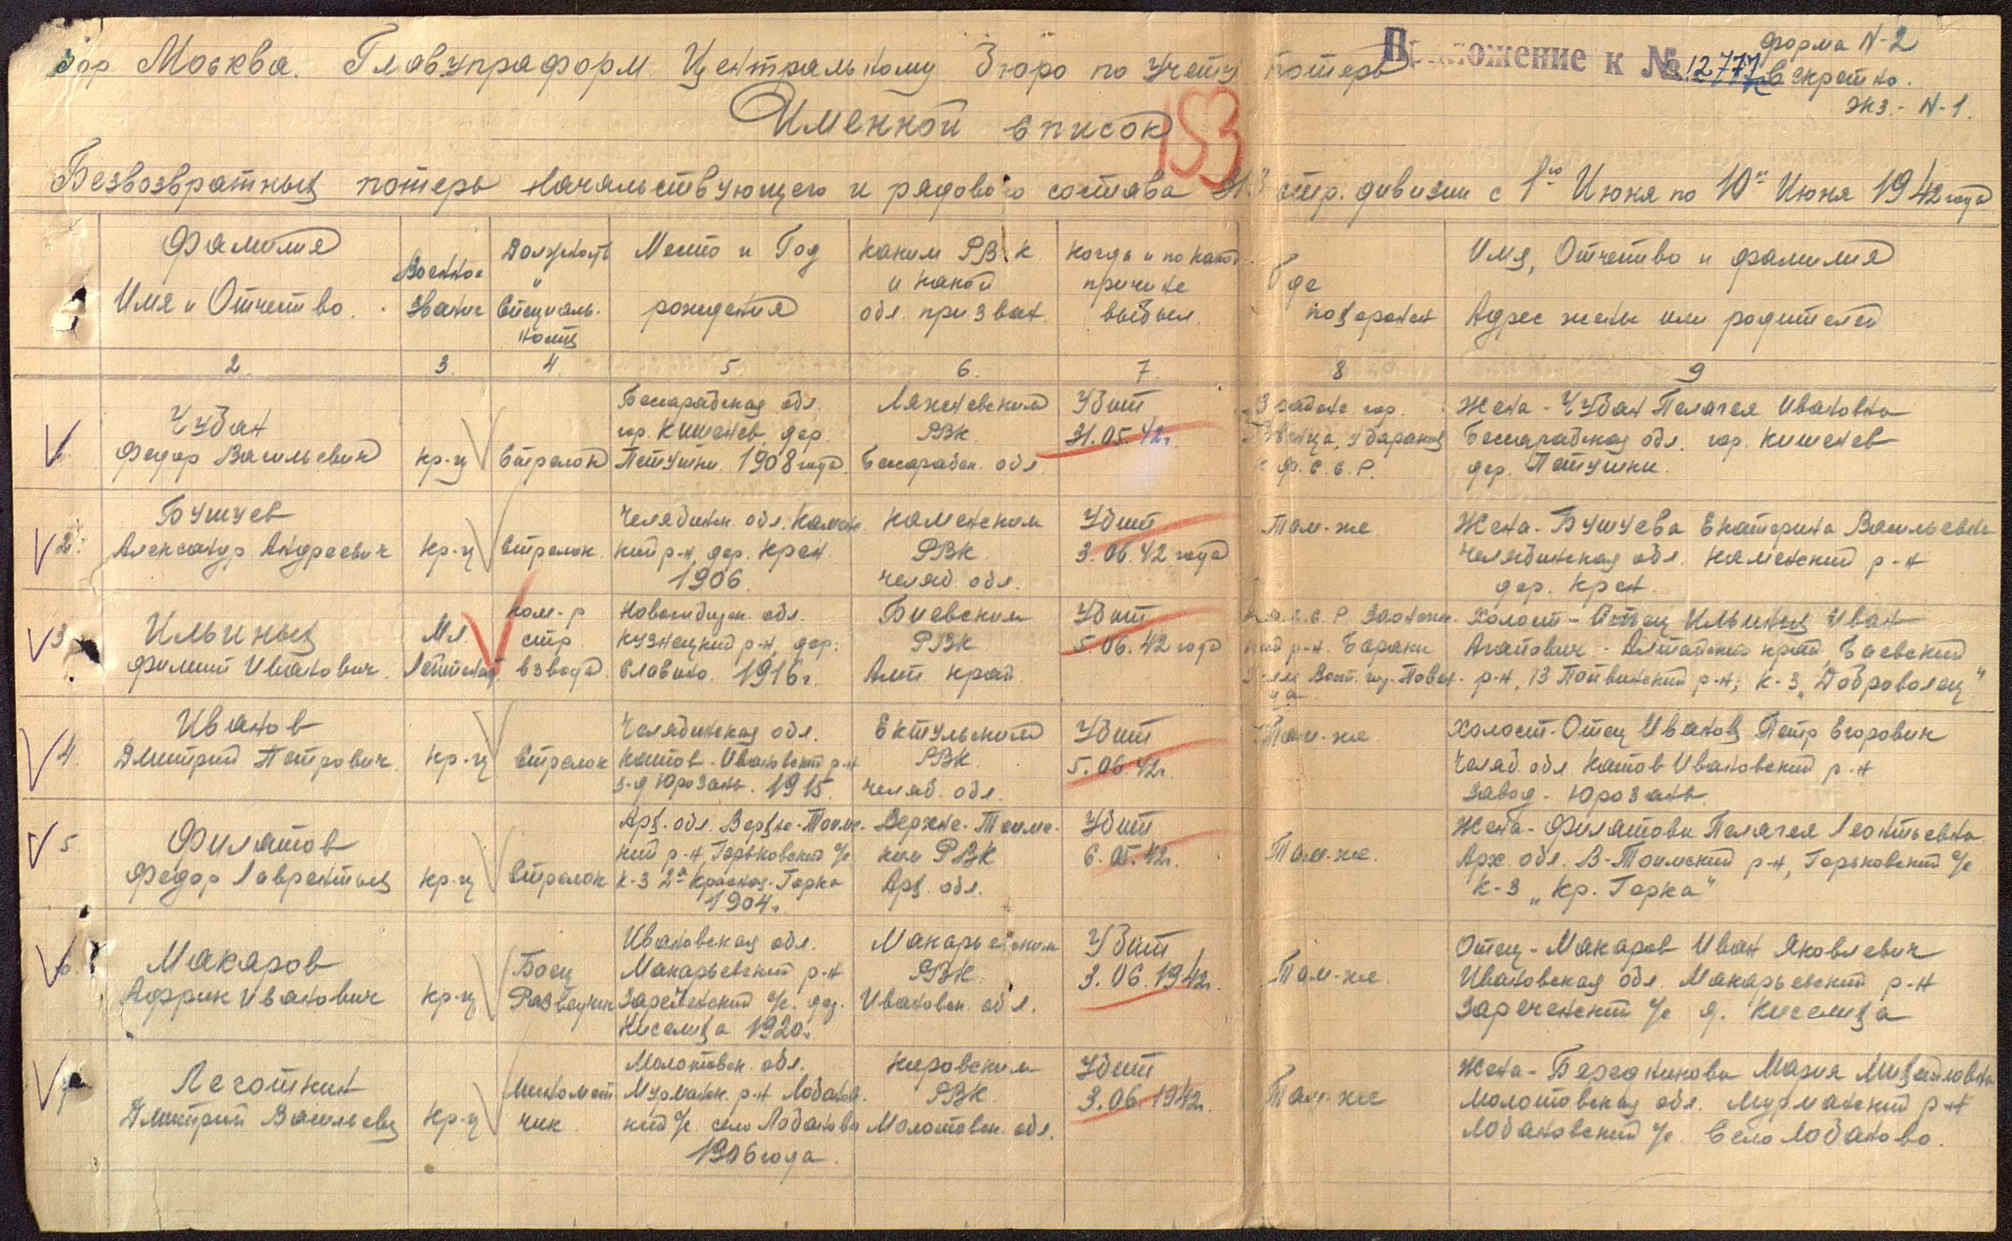 гор Москва. Главупраформ Центральному Бюро по учету потерь
Приложение к №12777с
Форма N-2
Секретно.
экз.- N-1.
Именной список
153
Безвозвратных потерь начальствующего и рядового состава стр. дивизии с 1го Июня по 10е Июня 1942 года
Фамилия
Имя и Отчество.
Военное
звание
Должность
и
специаль-
ность
Место и Год
рождения
Каким РВК
и какой
обл. призван
Когда и по какой
причине
выбыл.
Где
похоронен
Имя, Отчество и фамилия
Адрес жены или родителей
2 3. 4. 5. 6. 7. 8 9
Чубан
Федор Васильевич
кр-ц
Стрелок
Бессарабская обл.
гор. Кишенев дер.
Петушки 1908 года
РВК
Бессарабск. обл.
Убит
31.05.42г.
Жена - Чубан Пелагея Ивановна
Бессарабская обл. гор. Кишенев
дер. Петушки.
2.
Бушуев
Александр Андреевич
кр-ц
стрелок
Челябинск. обл. Камен-
ский р-н, дер. Крен
1906.
Каменским
РВК
челяб. обл.
Убит
3.06.42 года
Там-же
Жена - Бушуева Екатерина Васильевна
Челябинская обл. Каменский р-н
дер. Крен
3
Ильиных
Филипп Иванович.
Мл
Лейтенант
ком-р
стр
взвода
Новосибирск. обл.
Кузнецкий р-н, дер.
Славино. 1916г.
Биевским
РВК
Алт. край
Убит
5.06.42 года
Холост - Отец Ильиных Иван
Агапович - Алтайский край, Баевский
р-н, к-з "Доброволец"
4.
Иванов
Дмитрий Петрович
кр-ц
Стрелок
Челябинская обл.
Катав-Ивановский р-н
з-д Юрозань. 1915.
РВК
челяб. обл.
Убит
5.06.42г.
Там-же
Холост - Отец Иванов Петр Егорович
Челяб. обл Катав Ивановский р-н
завод - Юрозань.
5
Филатов
Федор Лаврентьев
кр-ц
Стрелок
Арх. обл. Верхне-Тоем-
ский р-н, Горьковский с/с
к-з 2-я Красная-Горка
1904г.
Верхне-Тоемс-
ким РВК
Арх. обл.
Убит
6.05.42г.
Там-же.
Жена - Филатова Пелагея Леонтьевна
Арх. обл. В-Тоемский р-н, Горьковский с/с
к-з "Кр. Горка"
6
Макаров
Африк Иванович
кр-ц
Боец
Разведчик
Ивановская обл.
Макарьевский р-н
Зареченский с/с. дер.
Киселиха 1920г.
Макарьевским
РВК
Ивановск. обл.
Убит
3.06.1942г.
Там-же.
Отец - Макаров Иван Яковлевич
Ивановская обл. Макарьевский р-н
Зареченский с/с д. Киселиха
7
Легошкин
Дмитрий Васильев
кр-ц
Миномет
чик
Молотовск. обл.
Мурманск. р-н Лобанов-
ский с/с. село Лобаново
1906 года.
Кировским
РВК
Молотовск. обл.
Убит
3.06.1942г.
Там-же
Жена - Мария Михайловна
Молотовская обл. Мурманский р-н
Лобановский с/с. Село Лобаново.